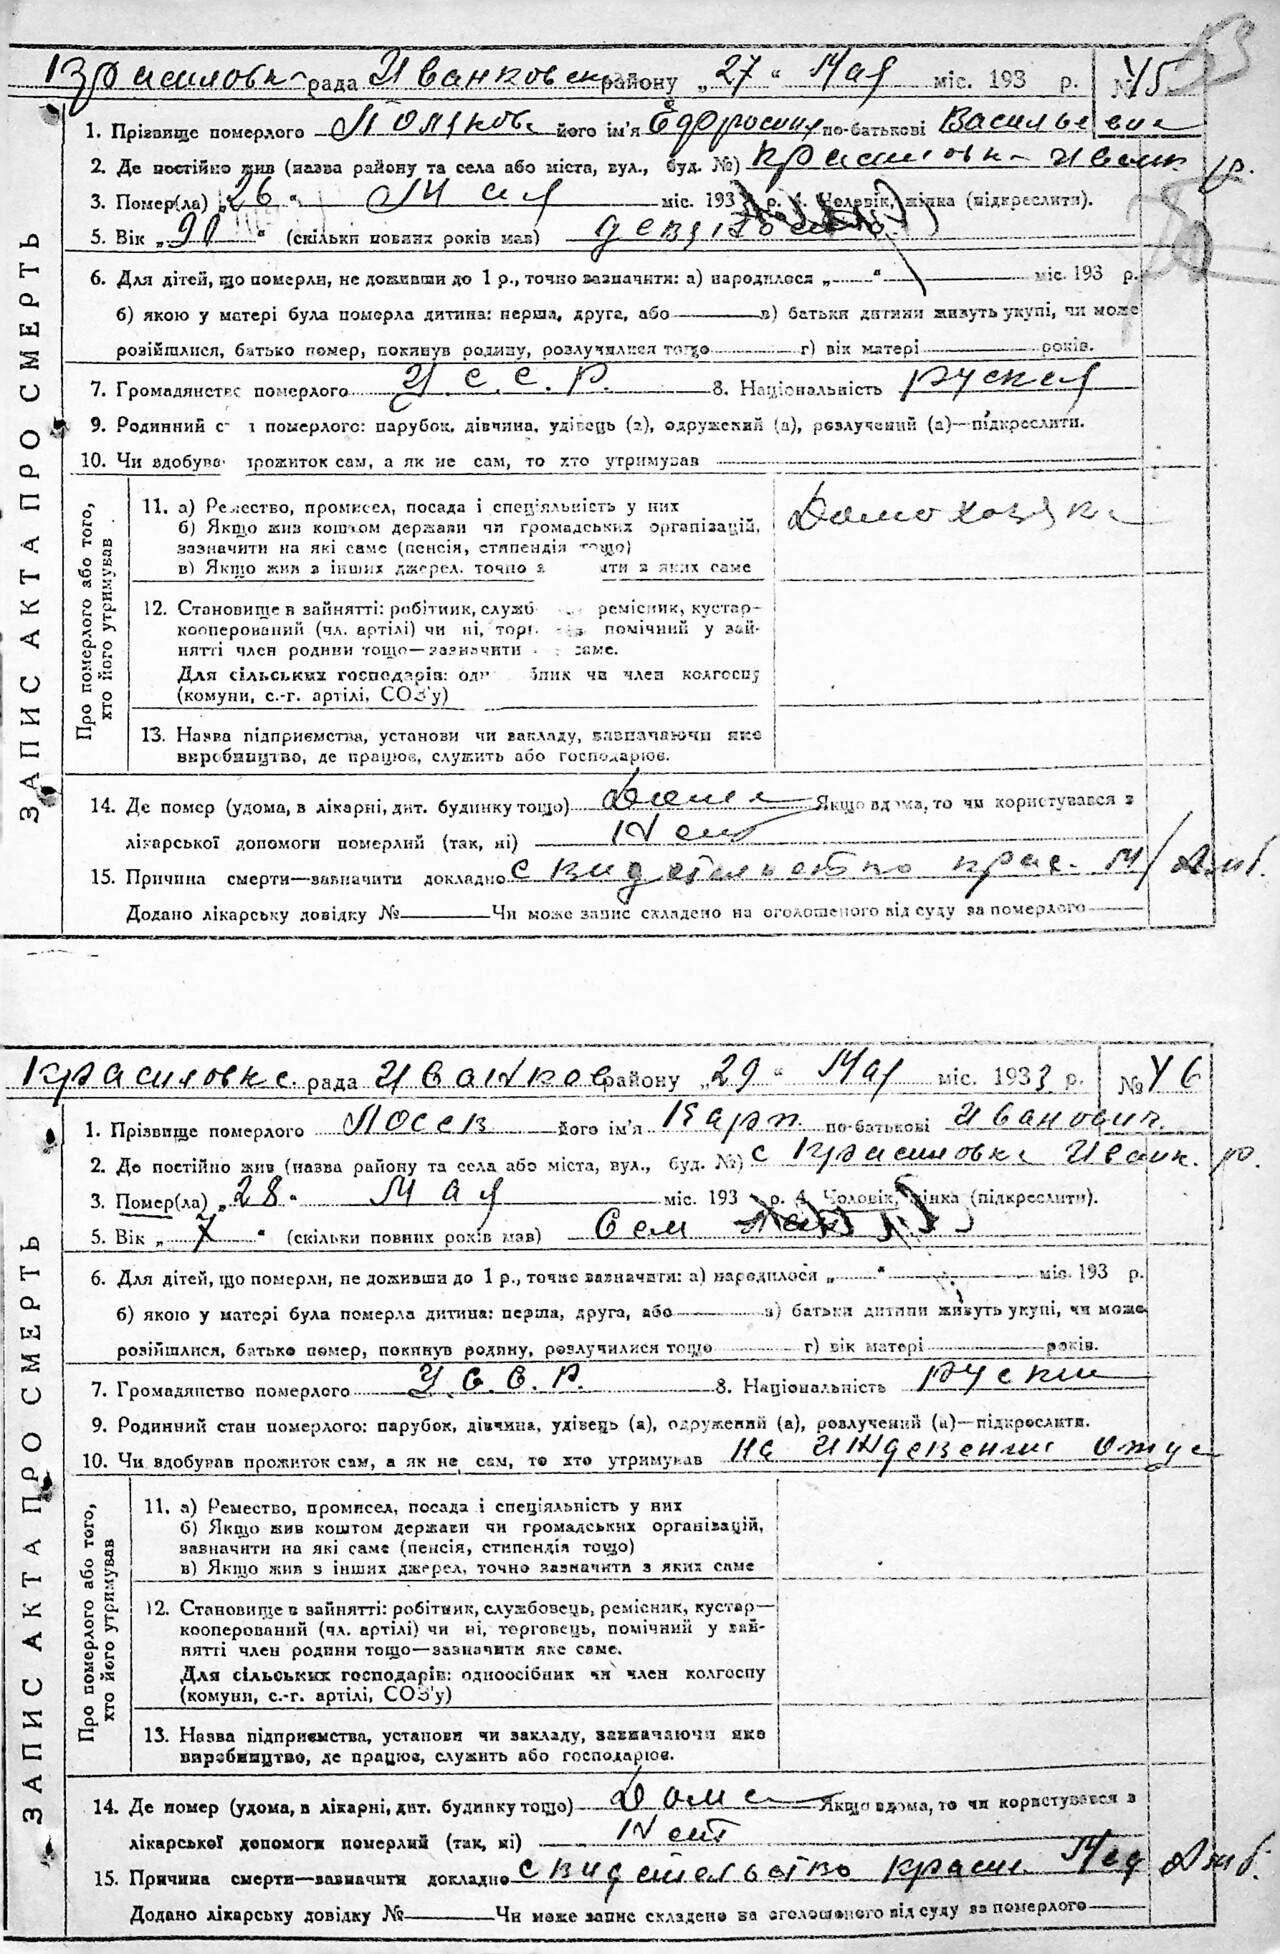 53
Красиловка рада Иванковск району „27“ Мая міс. 193 р. № 45
ЗАПИС АКТА ПРО СМЕРТЬ
1. Прізвище померлого Полякова його ім'я Ефросиния по-батькові Васильевна
2. Де постійно жив (назва району та села або міста, вул., буд. №) Красиловка Иванк. р.
3. Помер(ла) „26“ Мая міс. 193 р. 4. Чоловік, жінка (підкреслити).
5. Вік „90“ (скільки повних років мав) девяносто
6. Для дітей, що померли, не доживши до 1 р., точно зазначити: а) народилося „ “ міс. 193 р.
б) якою у матері була померла дитина: перша, друга, або в) батьки дитини живуть укупі, чи може
розійшлися, батько помер, покинув родину, розлучилися тощо г) вік матері років.
7. Громадянство померлого У.С.С.Р. 8. Національність руская
9. Родинний с н померлого: парубок, дівчина, удівець (а), одружений (а), розлучений (а)—підкреслити.
10. Чи здобува прожиток сам, а як не сам, то хто утримував
Про померлого або того,
хто його утримував
11. а) Ремество, промисел, посада і спеціяльність у них Домохозяйка
б) Якщо жив коштом держави чи громадських організацій,
зазначити на які саме (пенсія, стипендія тощо)
в) Якщо жив з інших джерел, точно з ити з яких саме
12. Становище в зайнятті: робітник, служб ремісник, кустар—
кооперований (чл. артілі) чи ні, торг помічний у зай-
нятті член родини тощо—зазначити саме.
Для сільських господарів: од бник чи член колгоспу
(комуни, с.-г. артілі, СОЗ'у)
13. Назва підприємства, установи чи закладу, зазначаючи яке
виробництво, де працює, служить або господарює.
14. Де помер (удома, в лікарні, дит. будинку тощо) Дома Якщо вдома, то чи користувався з
лікарської допомоги померлий (так, ні) Нет
15. Причина смерти—зазначити докладно свидетельство крас. М/ Амб.
Додано лікарську довідку № Чи може запис складено на оголошеного від суду за померлого
Красиловка рада Иванков району „29“ Мая міс. 1933 р. № 46
ЗАПИС АКТА ПРО СМЕРТЬ
1. Прізвище померлого Лосев його ім'я Карп по-батькові Иванович
2. Де постійно жив (назва району та села або міста, вул., буд. №) с Красиловка Иванк. р.
3. Помер(ла) „28“ Мая міс. 193 р. 4. Чоловік, жінка (підкреслити).
5. Вік „7“ (скільки повних років мав) Сем лет
6. Для дітей, що померли, не доживши до 1 р., точно зазначити: а) народилося „ “ міс. 193 р.
б) якою у матері була померла дитина: перша, друга, або в) батьки дитини живуть укупі, чи може
розійшлися, батько помер, покинув родину, розлучилися тощо г) вік матері років.
7. Громадянство померлого У.С.С.Р. 8. Національність руский
9. Родинний стан померлого: парубок, дівчина, удівець (а), одружений (а), розлучений (а)—підкреслити.
10. Чи здобував прожиток сам, а як не сам, то хто утримував на иждевении отца
Про померлого або того,
хто його утримував
11. а) Ремество, промисел, посада і спеціяльність у них
б) Якщо жив коштом держави чи громадських організацій,
зазначити на які саме (пенсія, стипендія тощо)
в) Якщо жив з інших джерел, точно зазначити з яких саме
12. Становище в зайнятті: робітник, службовець, ремісник, кустар—
кооперований (чл. артілі) чи ні, торговець, помічний у зай-
нятті член родини тощо—зазначити яке саме.
Для сільських господарів: одноосібник чи член колгоспу
(комуни, с.-г. артілі, СОЗ'у)
13. Назва підприємства, установи чи закладу, зазначаючи яке
виробництво, де працює, служить або господарює.
14. Де помер (удома, в лікарні, дит. будинку тощо) Дома Якщо вдома, то чи користувався з
лікарської допомоги померлий (так, ні) Нет
15. Причина смерти—зазначити докладно свидетельство красил. Мед Амб.
Додано лікарську довідку № Чи може запис складено на оголошеного від суду за померлого